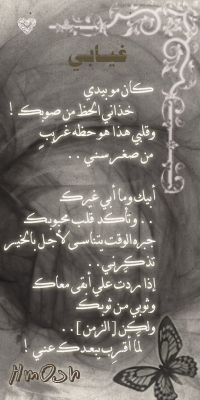 غيابي
كان مو بيدي
خذاني الحظ من صوبك !
وقلبي هذا هو حظه غريب
من صغر سني ..
أبيك وما أبي غيرك
.. وتأكد قلب محبوبك
جبره الوقت يتناسى لأجل بالخير
تذكرني ..
إذا ردت علي أبقى معاك
وثوبي من ثوبك
ولكن [ الزمن ] ..
لما أقرب يبعدك عني !